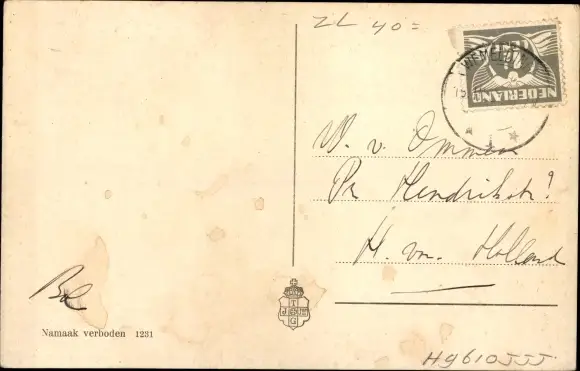 ZL 40=
NEDERLAND
W. v. Ommen
Pr. Hendrikstr.
H. van Holland
Bol
Namaak verboden 1231
Hg610JJJ